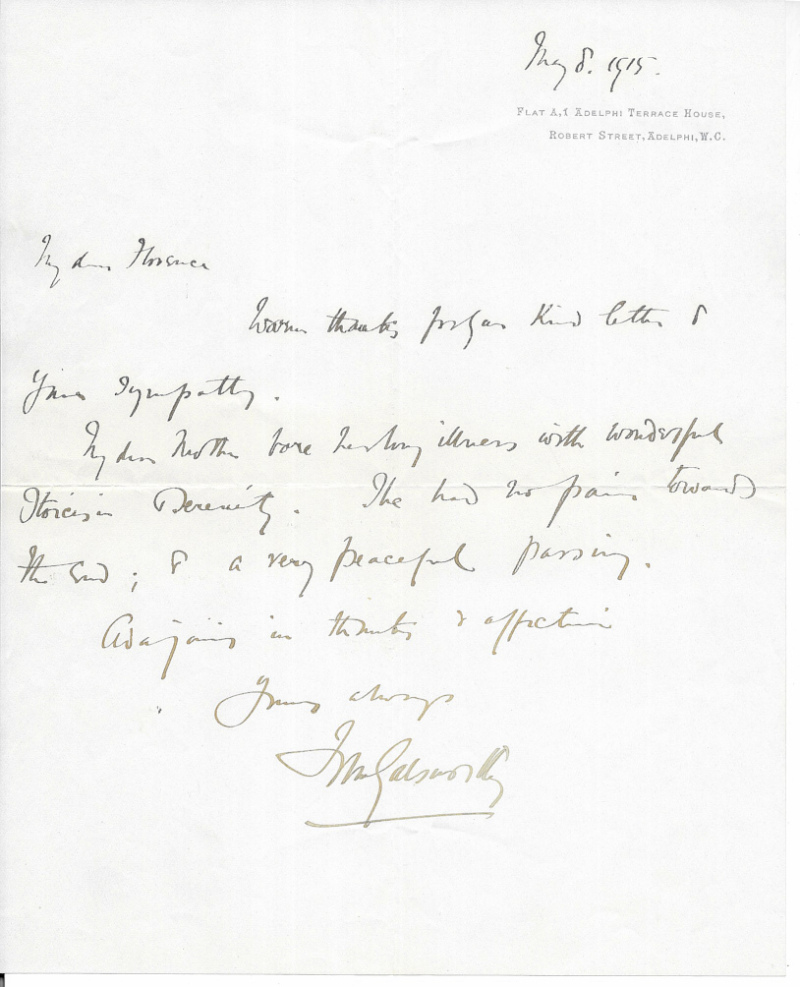 May 8. 1915.
FLAT A,1 ADELPHI TERRACE HOUSE,
ROBERT STREET, ADELPHI, W.C.
My dear Florence
Warm thanks for your kind letter &
your sympathy.
My dear Mother bore her long illness with wonderful
Stoicism Serenity. She had no pain towards
the end; & a very peaceful passing.
Ada joins in thanks & affection
Yours always
John Galsworthy